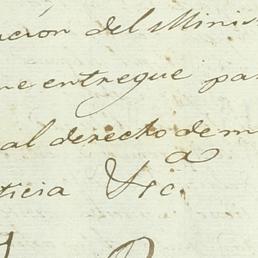 ación del Minis
me entregue par
al derecho de m
ticia &c.ª